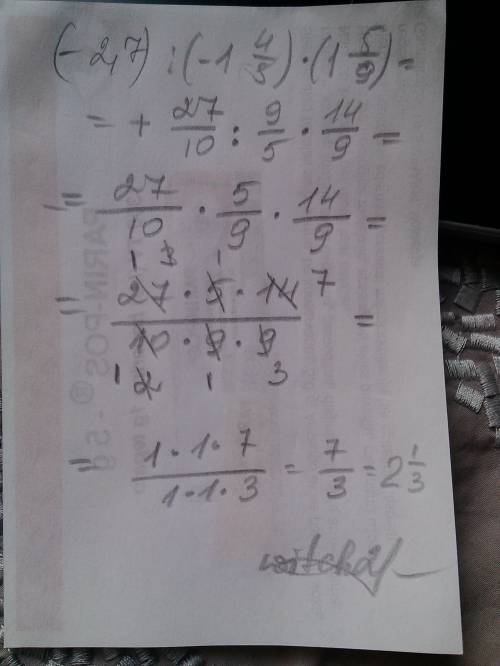 (-2,7) : (-1 4/5) · (1 5/9) =
= + 27/10 : 9/5 · 14/9 =
= 27/10 · 5/9 · 14/9 =
1 3 1
= 27 · 5 · 14 7 / 10 · 9 · 9 =
1 2 1 3
= 1 · 1 · 7 / 1 · 1 · 3 = 7/3 = 2 1/3